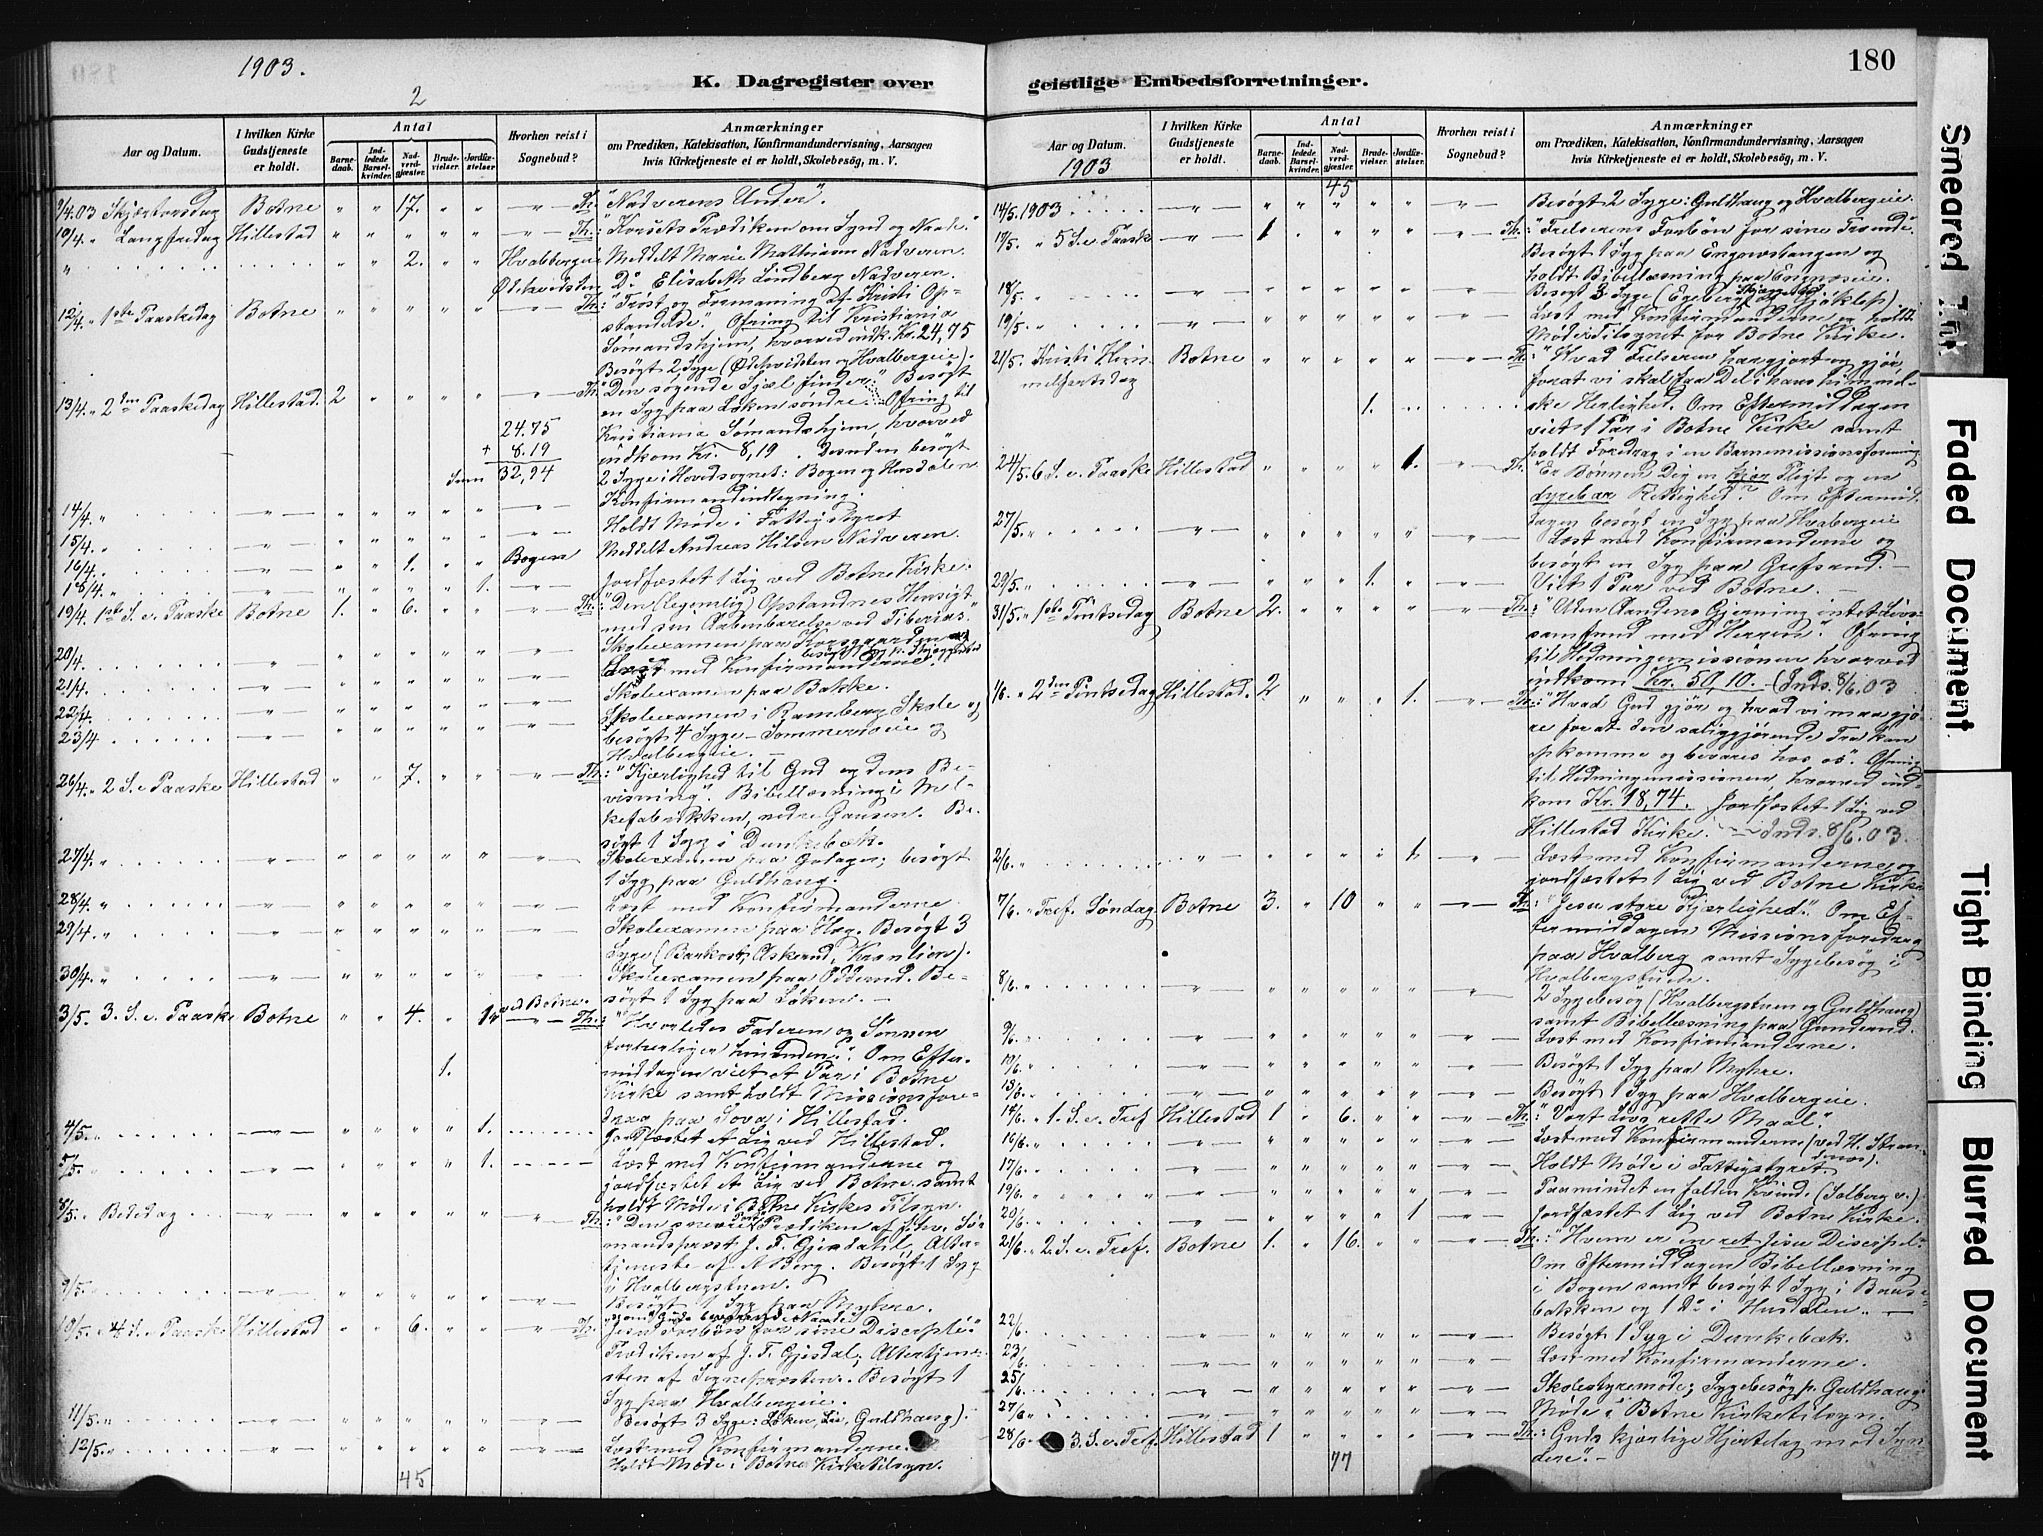 1903.
2
K. Dagregister over
Aar og Datum.
I hvilken Kirke Gudstjeneste er holdt.
Antal
Barne-daab.
Ind-ledede Barsel-kvinder.
Nad-verd-gjæster.
Brude-vielser.
Jordfæ-stelser
Hvorhen reist i Sognebud?
Anmærkninger
om Prædiken, Katekisation, Konfirmandundervisning, Aarsagen
hvis Kirketjeneste ei er holdt, Skolebesög, m. V.
9/4.03 Skjærtorsdag Botne " " 17. " " — " — Th: "Nadverens Under".
10/4. " Langfredag Hillestad " " " " " — " — Th: "Korsets Prædiken om Synd og Naade."
" " " 2. " " Hvalbergeie Meddelt Marie Mathiasen Nadveren.
Ødekvidsten Do Elisabeth Lindberg Nadveren.
12/4. " 1ste Paaskedag Botne " " " " " — " — Th: "Trøst og Formaning af Kristi Op-
standelse". Ofring til Kristiania
Sømandshjem, hvorved indk. Kr. 24,75
Besøgt 2 Syge (Ødekvidsten og Hvalbergeie).
13/4. " 2den Paaskedag Hillestad. 2 " " " " — " — Th: "Den søgende Sjæl finder." Besøgt
en Syg paa Løken søndre. Ofring til
24.75 Kristiania Sømandshjem, hvorved
+ 8.19 indkom Kr. 8,19. Desuden besøgt
Sum 32,94 2 Syge i Hovedsognet: Bogen og Husdalen
Konfirmandindtegning.
14/4. " — " — " " " " " — " — Holdt Møde i Fattigstyret
15/4. " — " — " " " " " — " —
16/4. " — " — " " 1. " " Bogen Meddelt Andreas Hilsen Nadveren.
18/4. " — " — " " " " 1. — " — Jordfæstet 1 Lig ved Botne Kirke.
19/4. 1ste S. e. Paaske Botne 1. " 6. " " — " — Th: "Den (legemlig) Opstandnes Hensigt
med sin Aabenbarelse ved Tiberias."
20/4. — " — " " " " " — " — Skoleexamen paa Korsgaarden og
besøgt 1 Syg p.
21/4. — " — " " " " " — " — Læst med Konfirmanderne.
22/4. — " — " " " " " — " — Skoleexamen paa Bakke.
23/4 — " — " " " " " — " — Skoleexamen i Ramberg Skole og
besøgt 4 Syge – Sommerroeie og
Hvalbergeie. —
26/4. " 2 S. e. Paaske Hillestad " " 7. " " — " — Th: "Kjærlighed til Gud og dens Be-
visning". Bibellæsning i Mel-
kefabrikken, nedre Gausen. Be-
søgt 1 Syg i Dunkebæk.
27/4. " — " — " " " " " — " — Skoleexamen paa Galagen; besøgt
1 Syg paa Guldhaug.
28/4. " — " — " " " " " — " — Læst med Konfirmanderne.
29/4. " — " — " " " " " — " — Skoleexamen paa Haga. Besøgt 3
Syge (Barkost, Askerud, Kranlien).
30/4. " — " — " " " " " — " — Skoleexamen paa Odderud. Be-
søgt 1 Syg paa Løken. —
3/5. 3. S. e. Paaske Botne " " 4. " 1 ved Botne. — " — Th: "Hvorledes Faderen og Sønnen
forherliger hinanden." Om Efter-
1. middagen viet et Par i Botne
Kirke samt holdt Missionsfore-
drag paa Sova i Hillestad.
4/5. " — " — " " " " 1. Jordfæstet et Lig ved Hillestad.
5/5. " — " — " " " " 1. Læst med Konfirmanderne og
jordfæstet et Lig ved Botne. samt
holdt Møde i Botne Kirkes Tilsyn.
8/5. " Bededag — " — " " " " " — " — Th: "Den snevre Port". Prædiken af fhv. Sø-
mandsprest J. T. Gjesdahl, Alter-
tjeneste af A Berg. Besøgt 1 Syg
i Hvalbergstuen.
9/5. " — " — " " " " " — " — Besøgt 1 Syg paa Myhre.
10/5. " 4 S. e. Paaske Hillestad " " 6. " " — " — Th: "Jesu Forbøn for sine Disciple".
Prædiken af J. T. Gjesdal; Altertjene-
sten af Sognepræsten. Besøgt 1
Syg paa Hvalbergeie.
11/5. " — " — " " " " " — " — Besøgt 3 Syge: Løken, Lie, Guldhaug).
12/5. " — " — " " " " " — " — Læst med Konfirmanderne.
Holdt Møde i Botne Kirketilsyn.
45
geistlige Embedsforretninger.
180
Aar og Datum.
1903
I hvilken Kirke Gudstjeneste er holdt.
Antal
Barne-daab.
Ind-ledede Barsel-kvinder.
Nad-verd-gjæster.
Brude-vielser.
Jordfæ-stelser.
Hvorhen reist i Sognebud?
Anmærkninger
om Prædiken, Katekisation, Konfirmandundervisning, Aarsagen
hvis Kirketjeneste ei er holdt, Skolebesög, m. V.
45
14/5. 1903 — " — " " " " " — " — Besøgt 2 Syge: Guldhaug og Hvalbergeie.
17/5. " 5 S. e. Paaske — " — 1. " " " " — " — Th: "Frelserens Forbøn for sine Troende".
Besøgt 1 Syg paa Engnæstangen og
holdt Bibellæsning paa Engnæseie.
18/5. " — " — " " " " " — " — Besøgt 3 Syge (Egeberg og Gjøklep)
19/5. " — " — " " " " " — " — Læst med Konfirmanderne og holdt
Møde i Tilsynet for Botne Kirke.
21/5. Kristi Him- Botne " " " " " — " — Th: "Hvad Frelseren har gjort og gjør,
melfartsdag forat vi skal faa Del i hans himmel-
1. ske Herlighed. Om Eftermiddagen
viet 1 Par i Botne Kirke samt
holdt Foredrag i en Barnemissionsforening
24/5. 6 S. e. Paaske Hillestad " " " " 1. — " — Th. "Er Bønnen Dig en kjær Pligt og en
dyrebar Rettighed?" Om Eftermid.
dagen besøgt en Syg paa Hvalbergeie
27/5. " — " — " " " " " — " — Læst med Konfirmanderne og
besøgt en Syg paa Grefsrud. —
29/5. " — " — " " " 1. " — " — Viet 1 Par ved Botne. —
31/5. " 1ste Pintsedag Botne 2. " " " " — " — Th: "Uden Aandens Gjerning intet Livs-
samfund med Herren." Ofring
til Hedningemissionen hvorved
indkom Kr. 50,10. (Inds. 8/6.03
1/6. " 2den Pintsedag Hillestad. 2 " " " 1. — " — Th: "Hvad Gud gjør og hvad vi maa gjø-
re for at den saliggjørende Tro kan
opkomme og bevares hos os". Ofring
til Hedningemissionen, hvorved ind-
kom Kr. 18,74. Jordfæstet 1 Lig ved
Hillestad Kirke. — Inds. 8/6.03.
2/6. " — " — " " " " 1. — " — Læst med Konfirmanderne og
jordfæstet 1 Lig ved Botne Kirke
7/6. " Tref. Søndag Botne 3. " 10 " " — " — Th: "Jesu store Kjærlighed." Om Ef-
termiddagen Missionsforedrag
paa Hvalberg samt Sygebesøg i
Hvalbergstuen.
8/6. " — " — " " " " " — " — 2 Sygebesøg (Hvalbergstuen og Guldhaug)
samt Bibellæsning paa Gunderud.
9/6. " — " — " " " " " — " — Læst med Konfirmanderne.
— " — " " " " " — " — Besøgt 1 Syg paa Myhre.
13/6. " — " — " " " " " — " — Besøgt 1 Syg paa Hvalbergeie.
14/6. " 1. S. e. Tref Hillestad 1 " 6. " " — " — Th: "Vort Livs rette Maal".
16/6. " — " — " " " " " — " — Læst med Konfirmanderne (ved H. Stran-
17/6. " — " — " " " " " — " — Holdt Møde i Fattigstyret.
19/6. " — " — " " " " " — " — Paamindet en falden Kvinde (Solberg v.)
20/6. " — " — " " " " 1 — " — Jordfæstet 1 Lig ved Botne Kirke.
21/6. " 2. S. e. Tref. Botne 1. " 16. " " — " — Th: "Hvem er en ret Jesu Discipel."
Om Eftermiddagen Bibellæsning
i Bogen samt besøgt 1 Syg i Braase-
bakken og 1 Do i Husdalen. —
22/6. — " — " " " " " — " — Besøgt 1 Syg i Dunkebæk.
23/6. — " — " " " " " — " — Læst med Konfirmanderne.
25/6. — " — " " " " " — " — Skolestyremøde; Sygebesøg p. Guldhaug.
27/6. " — " — " " " " " — " — Møde i Botne Kirketilsyn.
28/6. 3. S. e. Tref. Hillestad 1 " " " " — " — Th: "Guds kjærlige Hjertelag mod Syn-
dere". —
77
Smeared Ink
Faded Document
Tight Binding
Blurred Document